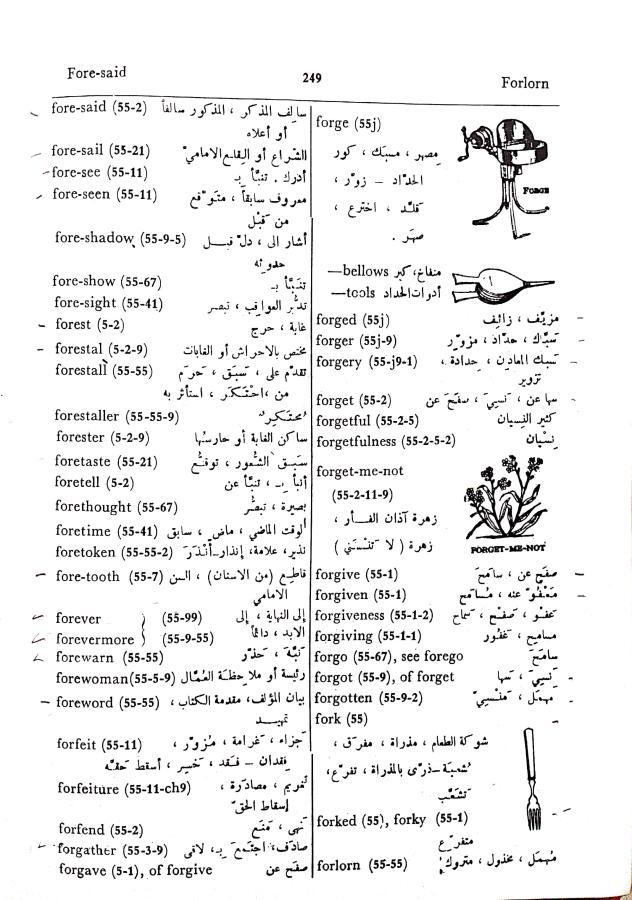 Fore-said
249
Forlorn
fore-said (55-2) سالف المذكر ، المذكور سالفاً
أو أعلاه
fore-sail (55-21) الشراع أو القلع الامامي
fore-see (55-11) أدرك . تنبّأ بـ
fore-seen (55-11) معروف سابقاً ، متوقع
من قبل
fore-shadow (55-9-5) أشار الى ، دلّ قبل
حدوثه
fore-show (55-67) تنبّأ بـ
fore-sight (55-41) تدبّر العواقب ، تبصر
forest (5-2) غابة ، حرج
forestal (5-2-9) مختص بالاحراش أو الغابات
forestall (55-55) تقدّم على ، سبق ، حرم
من ، احتكر ، استأثر به
forestaller (55-55-9) محتكر
forester (5-2-9) ساكن الغابة أو حارسها
foretaste (55-21) سبق الشعور ، توقع
foretell (5-2) أنبأ بـ ، تنبّأ عن
forethought (55-67) بصيرة ، تبصّر
foretime (55-41) الوقت الماضي ، ماض ، سابق
foretoken (55-55-2) نذير ، علامة، إنذار_أنذر
fore-tooth (55-7) قاطع (من الاسنان) ، السن
الامامي
forever (55-99) إلى النهاية ، إلى
forevermore (55-9-55) الابد ، دائماً
forewarn (55-55) نبّه ، حذّر
forewoman(55-5-9) رئيسة أو ملاحظة العمّال
foreword (55-55) بيان المؤلف، مقدمة الكتاب ،
تمهيد
forfeit (55-11) جزاء ، غرامة ، مزور ،
فقدان – فقد ، خسر ، أسقط حقه
forfeiture (55-11-ch9) تغريم ، مصادرة ،
إسقاط الحقّ
forfend (55-2) نهى ، منع
forgather (55-3-9) صادف، اجتمع بـ، لاقى
forgave (5-1), of forgive صفح عن
forge (55j)
مصهر ، مسبك ، كور
الحدّاد – زور ،
قلّد ، اخترع ،
صهر .
FORGE
—bellows منفاخ، كير
—tools أدوات الحداد
forged (55j) مزيّف ، زائف
forger (55j-9) سبّاك ، حدّاد ، مزوّر
forgery (55-j9-1) سبك المعادن ، حدادة ،
تزوير
forget (55-2) سها عن ، نسي ، صفح عن
forgetful (55-2-5) كثير النسيان
forgetfulness (55-2-5-2) نسيان
forget-me-not
(55-2-11-9)
زهرة آذان الفأر ،
زهرة ( لا تنسني )
FORGET-ME-NOT
forgive (55-1) صفح عن ، سامح
forgiven (55-1) معفوّ عنه ، مسامح
forgiveness (55-1-2) عفو ، صفح ، سماح
forgiving (55-1-1) مسامح ، غفور
forgo (55-67), see forego سامح
forgot (55-9), of forget نسي ، سها
forgotten (55-9-2) مهمل ، منسيّ
fork (55)
شوكة الطعام ، مذراة ، مفرق ،
شعبة–ذرّى بالمذراة ، تفرّع ،
تشعّب
forked (55), forky (55-1)
متفرع
forlorn (55-55) مهمل ، مخذول ، متروك